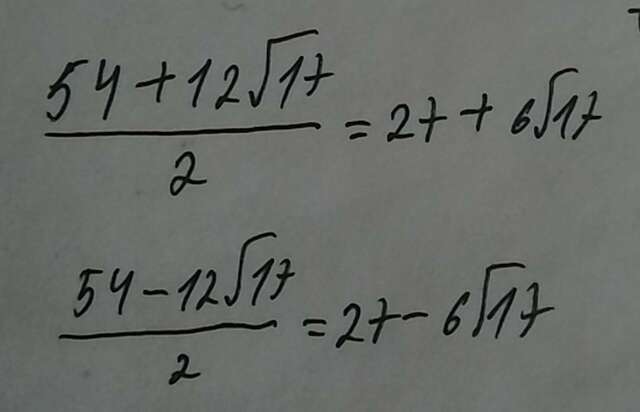 (54+12√17)/2 = 27 + 6√17
(54-12√17)/2 = 27 - 6√17